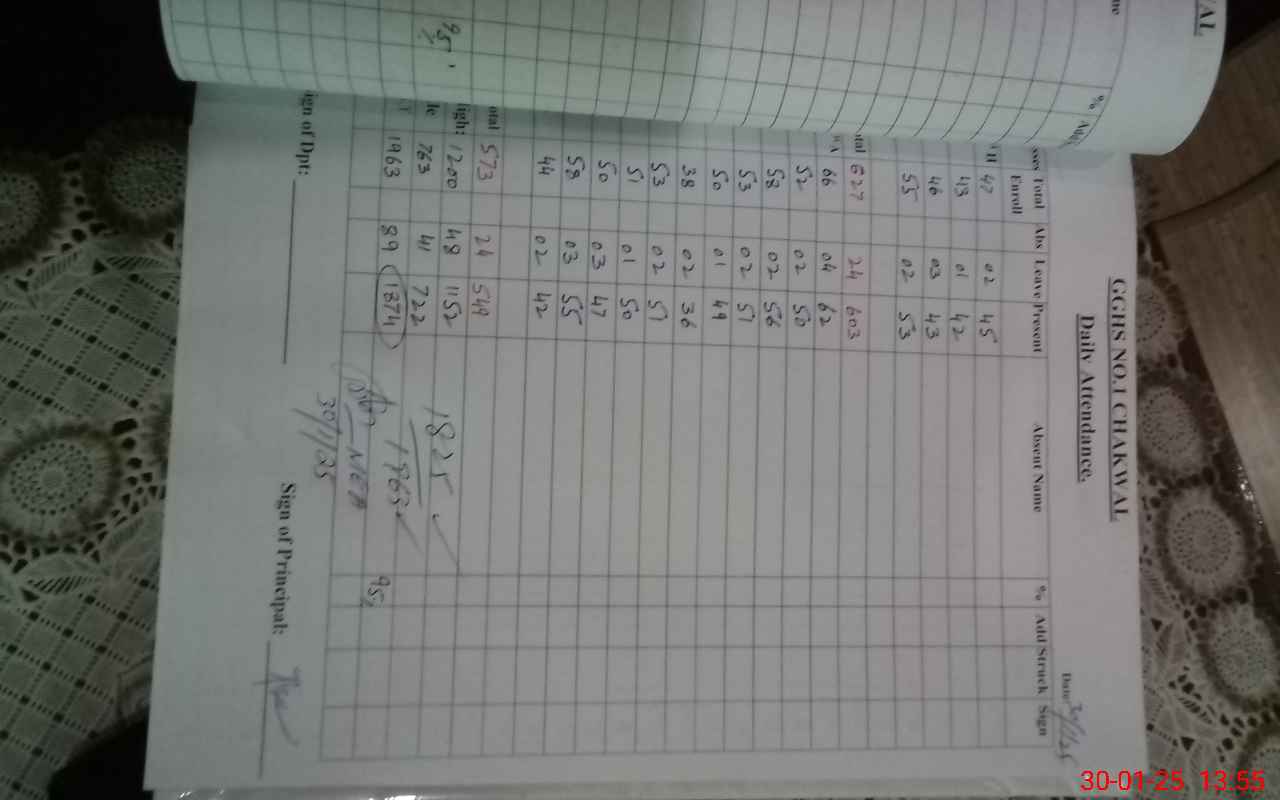 GGHS NO.1 CHAKWAL
Daily Attendance.
Date: 30/1/25
Total Enroll Abs Leave Present Absent Name % Add Struck Sign
47 02 45
43 01 42
46 03 43
55 02 53
627 24 603
66 04 62
52 02 50
58 02 56
53 02 51
50 01 49
38 02 36
53 02 51
51 01 50
50 03 47
58 03 55
44 02 42
573 24 549
1200 48 1152
763 41 722
1963 89 1874 95%
1825
1963
30/1/25
ign of Dpt:
Sign of Principal:
95%
% Add
30-01-25, 13:55